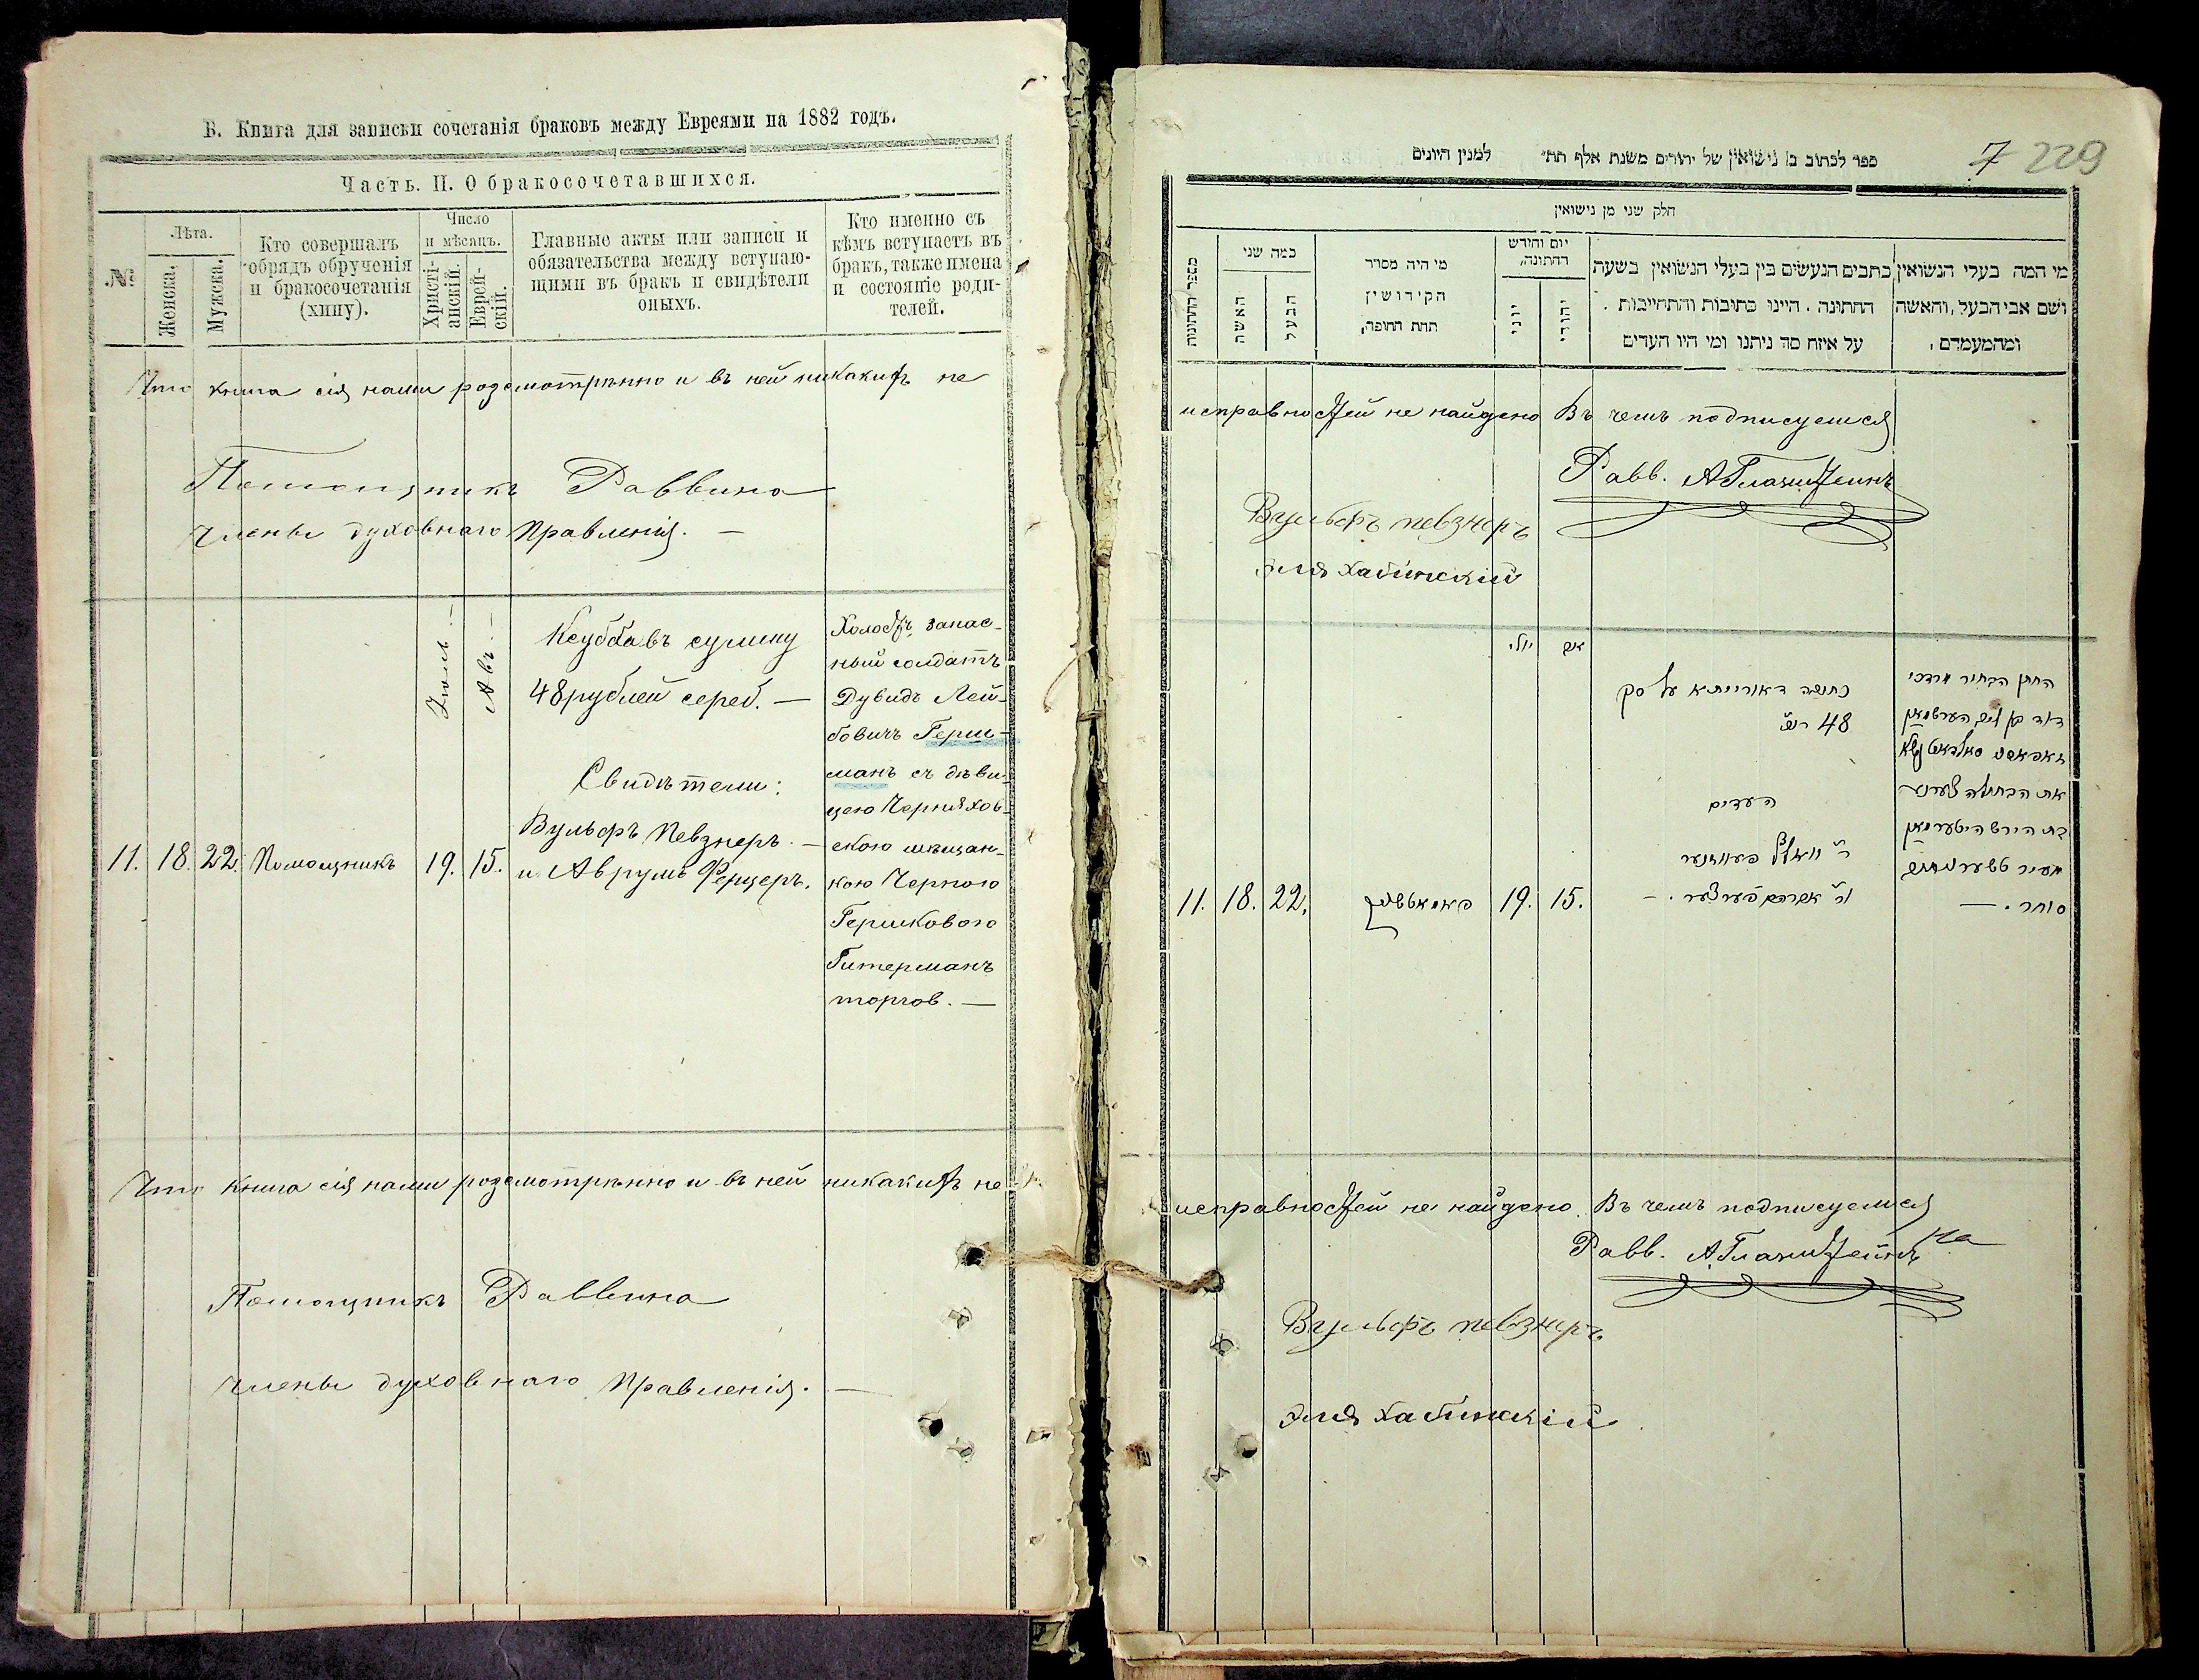 В. Книга для записки сочетанія браковъ между Евреями на 1882 годъ.
Часть. II. О бракосочетавшихся.
№
Лѣта.
Женска.
Мужска.
Кто совершалъ
обрядъ обрученія
и бракосочетанія
(хипу).
Число
и мѣсяцъ.
Христі-
анскій.
Еврей-
скій.
Главные акты или записи и
обязательства между вступаю-
щими въ бракъ и свидѣтели
оныхъ.
Кто именно съ
кѣмъ вступаетъ въ
бракъ, также имена
и состояніе роди-
телей.
Что книга сія нами розсмотрѣнно и въ ней никакихъ не
Помощникъ Раввина
Члены духовнаго Правленія. —
Іюль —
Авъ. —
11. 18. 22. Помощникъ 19. 15.
Ксубба въ сумму
48 рублей сереб. —
Свидѣтели:
Вульфъ Певзнеръ. —
и Аврумъ Ферцеръ.
Холостъ запас-
ный солдатъ
Дувидъ Лей-
бовичъ Герш-
манъ съ дѣви-
цею Черняхов-
скою мѣщан-
кою Черною
Гершковою
Гитерманъ
торгов. —
Что книга сія нами розсмотрѣнно и въ ней никакихъ не
Помощникъ Раввина
Члены духовнаго Правленія. —
ספר לכתוב בו נישואין של יהודים משנת אלף תת״ למנין היונים
7 229
חלק שני מן נישואין
מספר החתונות
כמה שני
האשה
הבעל
מי היה מסדר
הקידושין
תחת החופה,
יום וחודש
החתונה,
יוני
יהודי
כתבים הנעשים בין בעלי הנשואין בשעת
החתונה. היינו כתובות והתחייבות.
על איזה סך ניתנו ומי היו העדים
מי המה בעלי הנשואין,
ושם אבי הבעל, והאשה
ומהמעמדם,
исправностей не найдено Въ чемъ подписуемся
Равв. А Глазштейнъ
Вульфъ Певзнеръ
Эля Хабинскій
יולי
אב
11. 18. 22. 19. 15.
כתובה דאורייתא על סך
48 רו״כ
העדים
ר׳ וואלף פעווזנער
ור׳ אברהם פערצער. —
החתן הבחור מרדכי
דוד בן ליב הערשמאן
את הבתולה
בת הירש היטערמאן
סוחר. —
исправностей не найдено. Въ чемъ подписуемся
Равв. А. Глазштейнъ
На
Вульфъ Певзнеръ
Эля Хабинскій